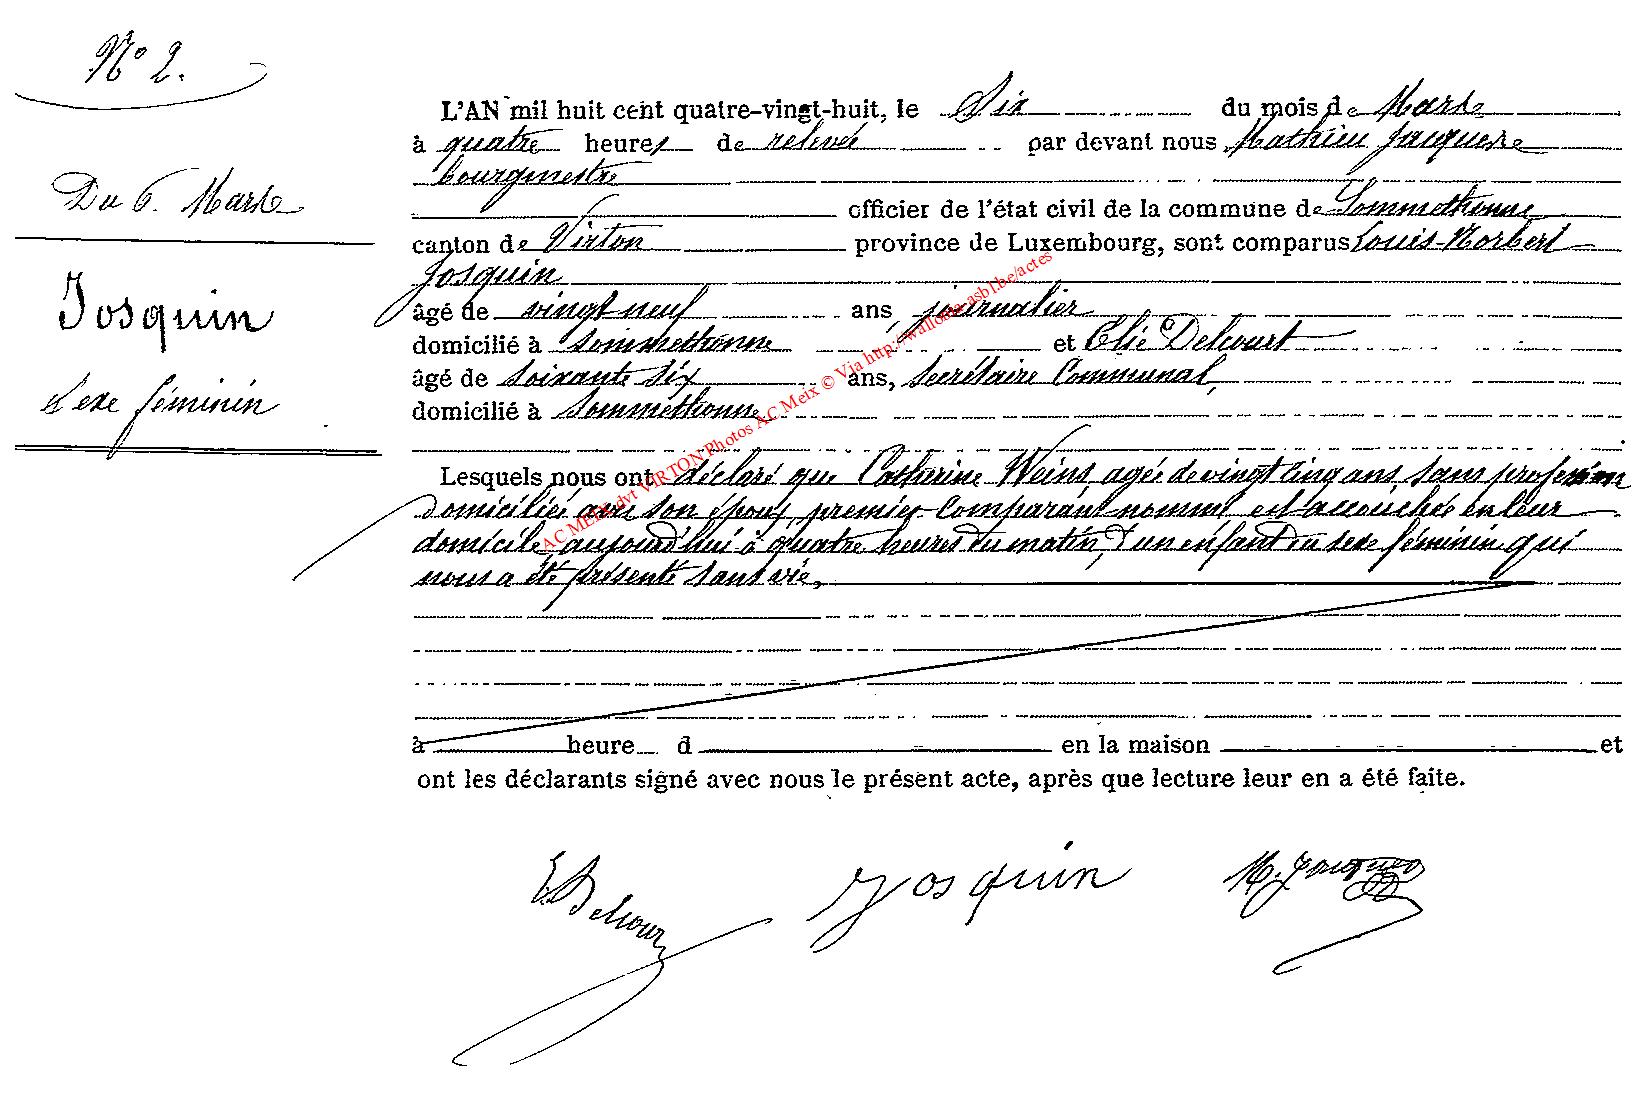 N° 2.
Du 6. Mars
Josquin
Sexe féminin
L'AN mil huit cent quatre-vingt-huit, le Six du mois de Mars
à quatre heures de relevée par devant nous Mathieu Jacquere
bourgmestre
officier de l'état civil de la commune de Sommethonne
canton de Virton province de Luxembourg, sont comparus Louis-Norbert
Josquin
âgé de vingt neuf ans, journalier
domicilié à Sommethonne et Elie Delcourt
âgé de soixante six ans, secrétaire Communal,
domicilié à Sommethonne
Lesquels nous ont déclaré que Catherine Weins, agée de vingt cinq ans sans profession
domiciliée avec son époux, premier Comparant nommé, est accouchée en leur
domicile, aujourd'hui à quatre heures du matin, d'un enfant du sexe féminin qui
nous a été présenté sans vie,
à heure d en la maison et
ont les déclarants signé avec nous le présent acte, après que lecture leur en a été faite.
E. Delcour Josquin M.
AC MEIX dvt VIRTON Photos AC Meix © Via http://wallonia-asbl.be/actes